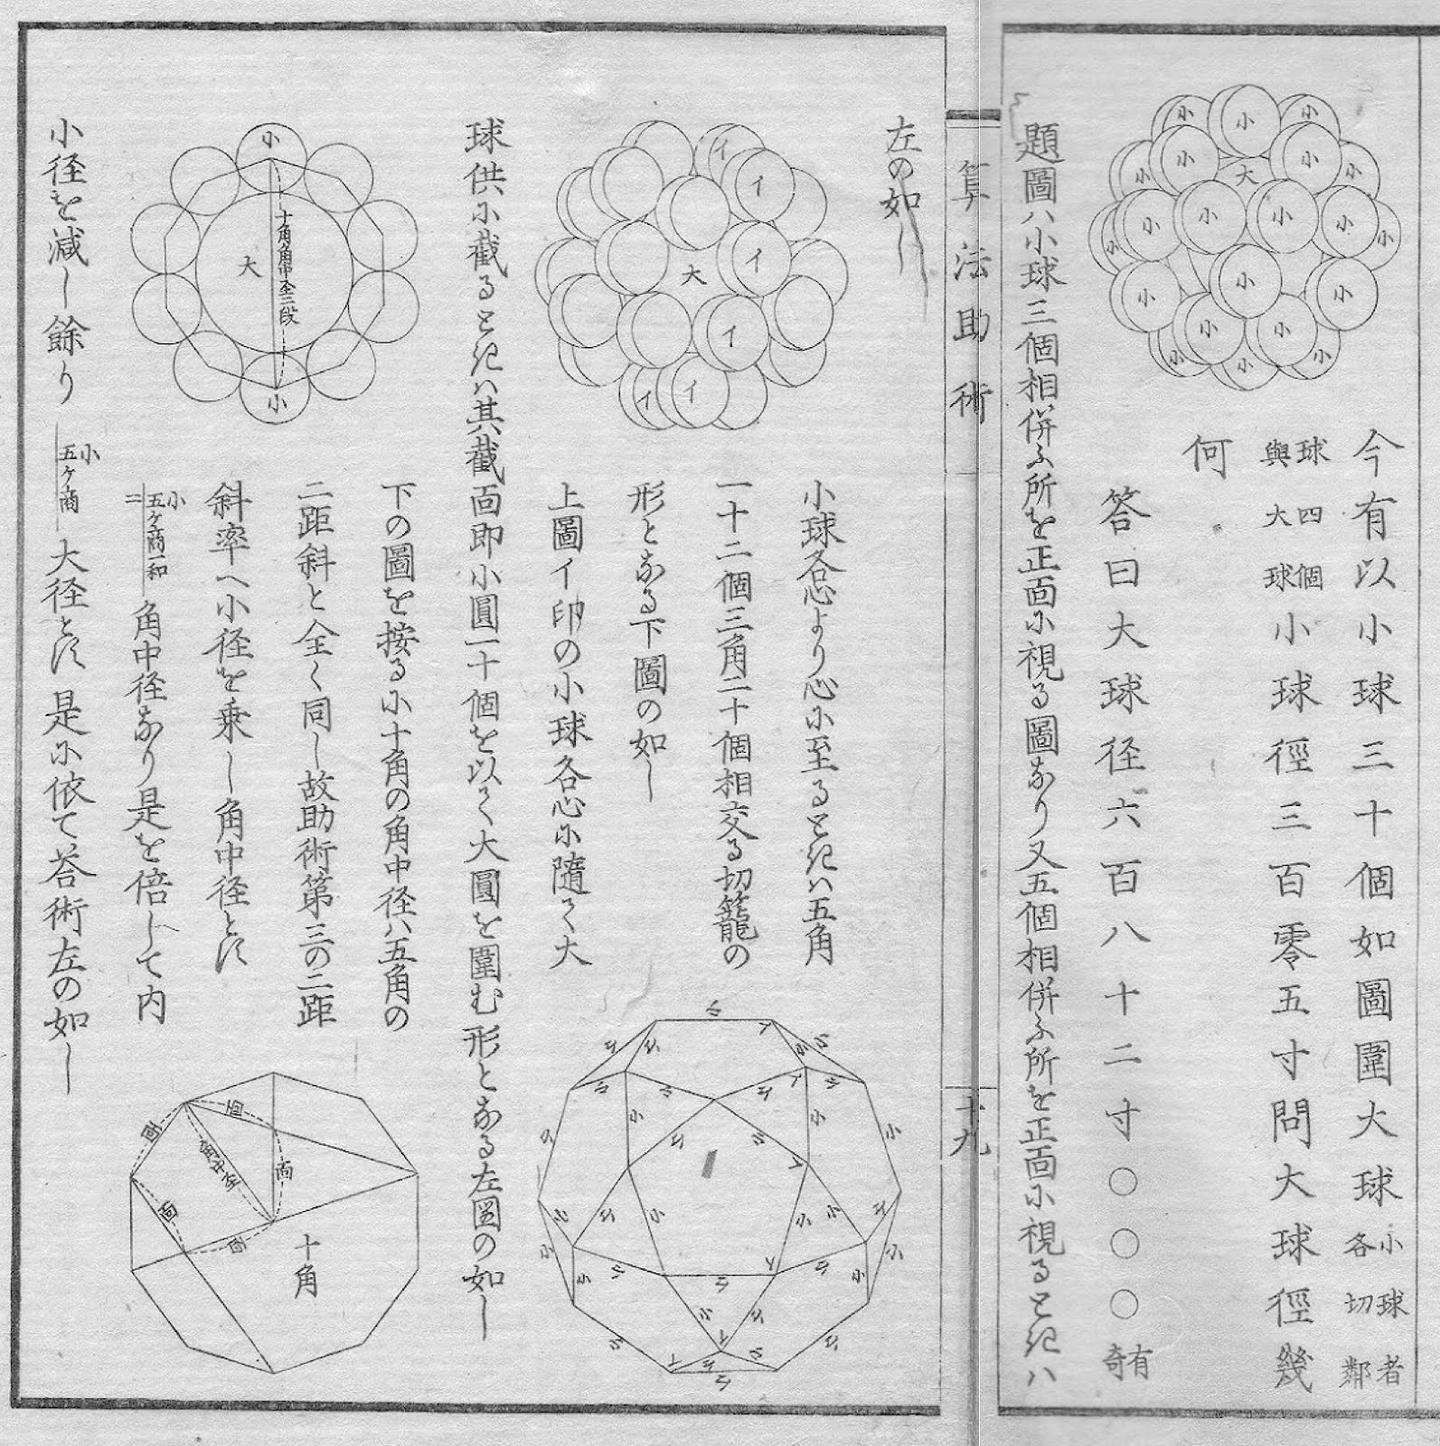 今有以小球三十個如圖圍大球 小球者各切鄰
球四個與大球 小球徑三百零五寸問大球徑幾
何
答曰大球径六百八十二寸〇〇〇有奇
題圖ハ小球三個相併ふ所を正面に視る圖なり又五個相併ふ所を正面に視るときハ
小 小 小 小 小 小 大 小 小 小 小 小 小 小 小 小 小 小 小 小 小 小
算法助術
十九
左の如し
イ イ イ 大 イ イ イ
小球各心より心に至るときハ五角
一十二個三角二十個相交る切籠の
形となる下圖の如し
上圖イ印の小球各心に随て大
球供に截るときハ其截面即小圓一十個を以て大圓を圍む形となる左図の如し
小 十角角中径二段 大 小
下の圖を按るに十角の角中径ハ五角の
二距斜と全く同し故助術第三の二距
斜率へ小径を乗し角中径とす
小 五ケ商一和 二 角中径なり是を倍して内
小径を減し餘り 小 五ケ商 大径とす是に依て答術左の如し
面 面 角中径 面 面 面 十角